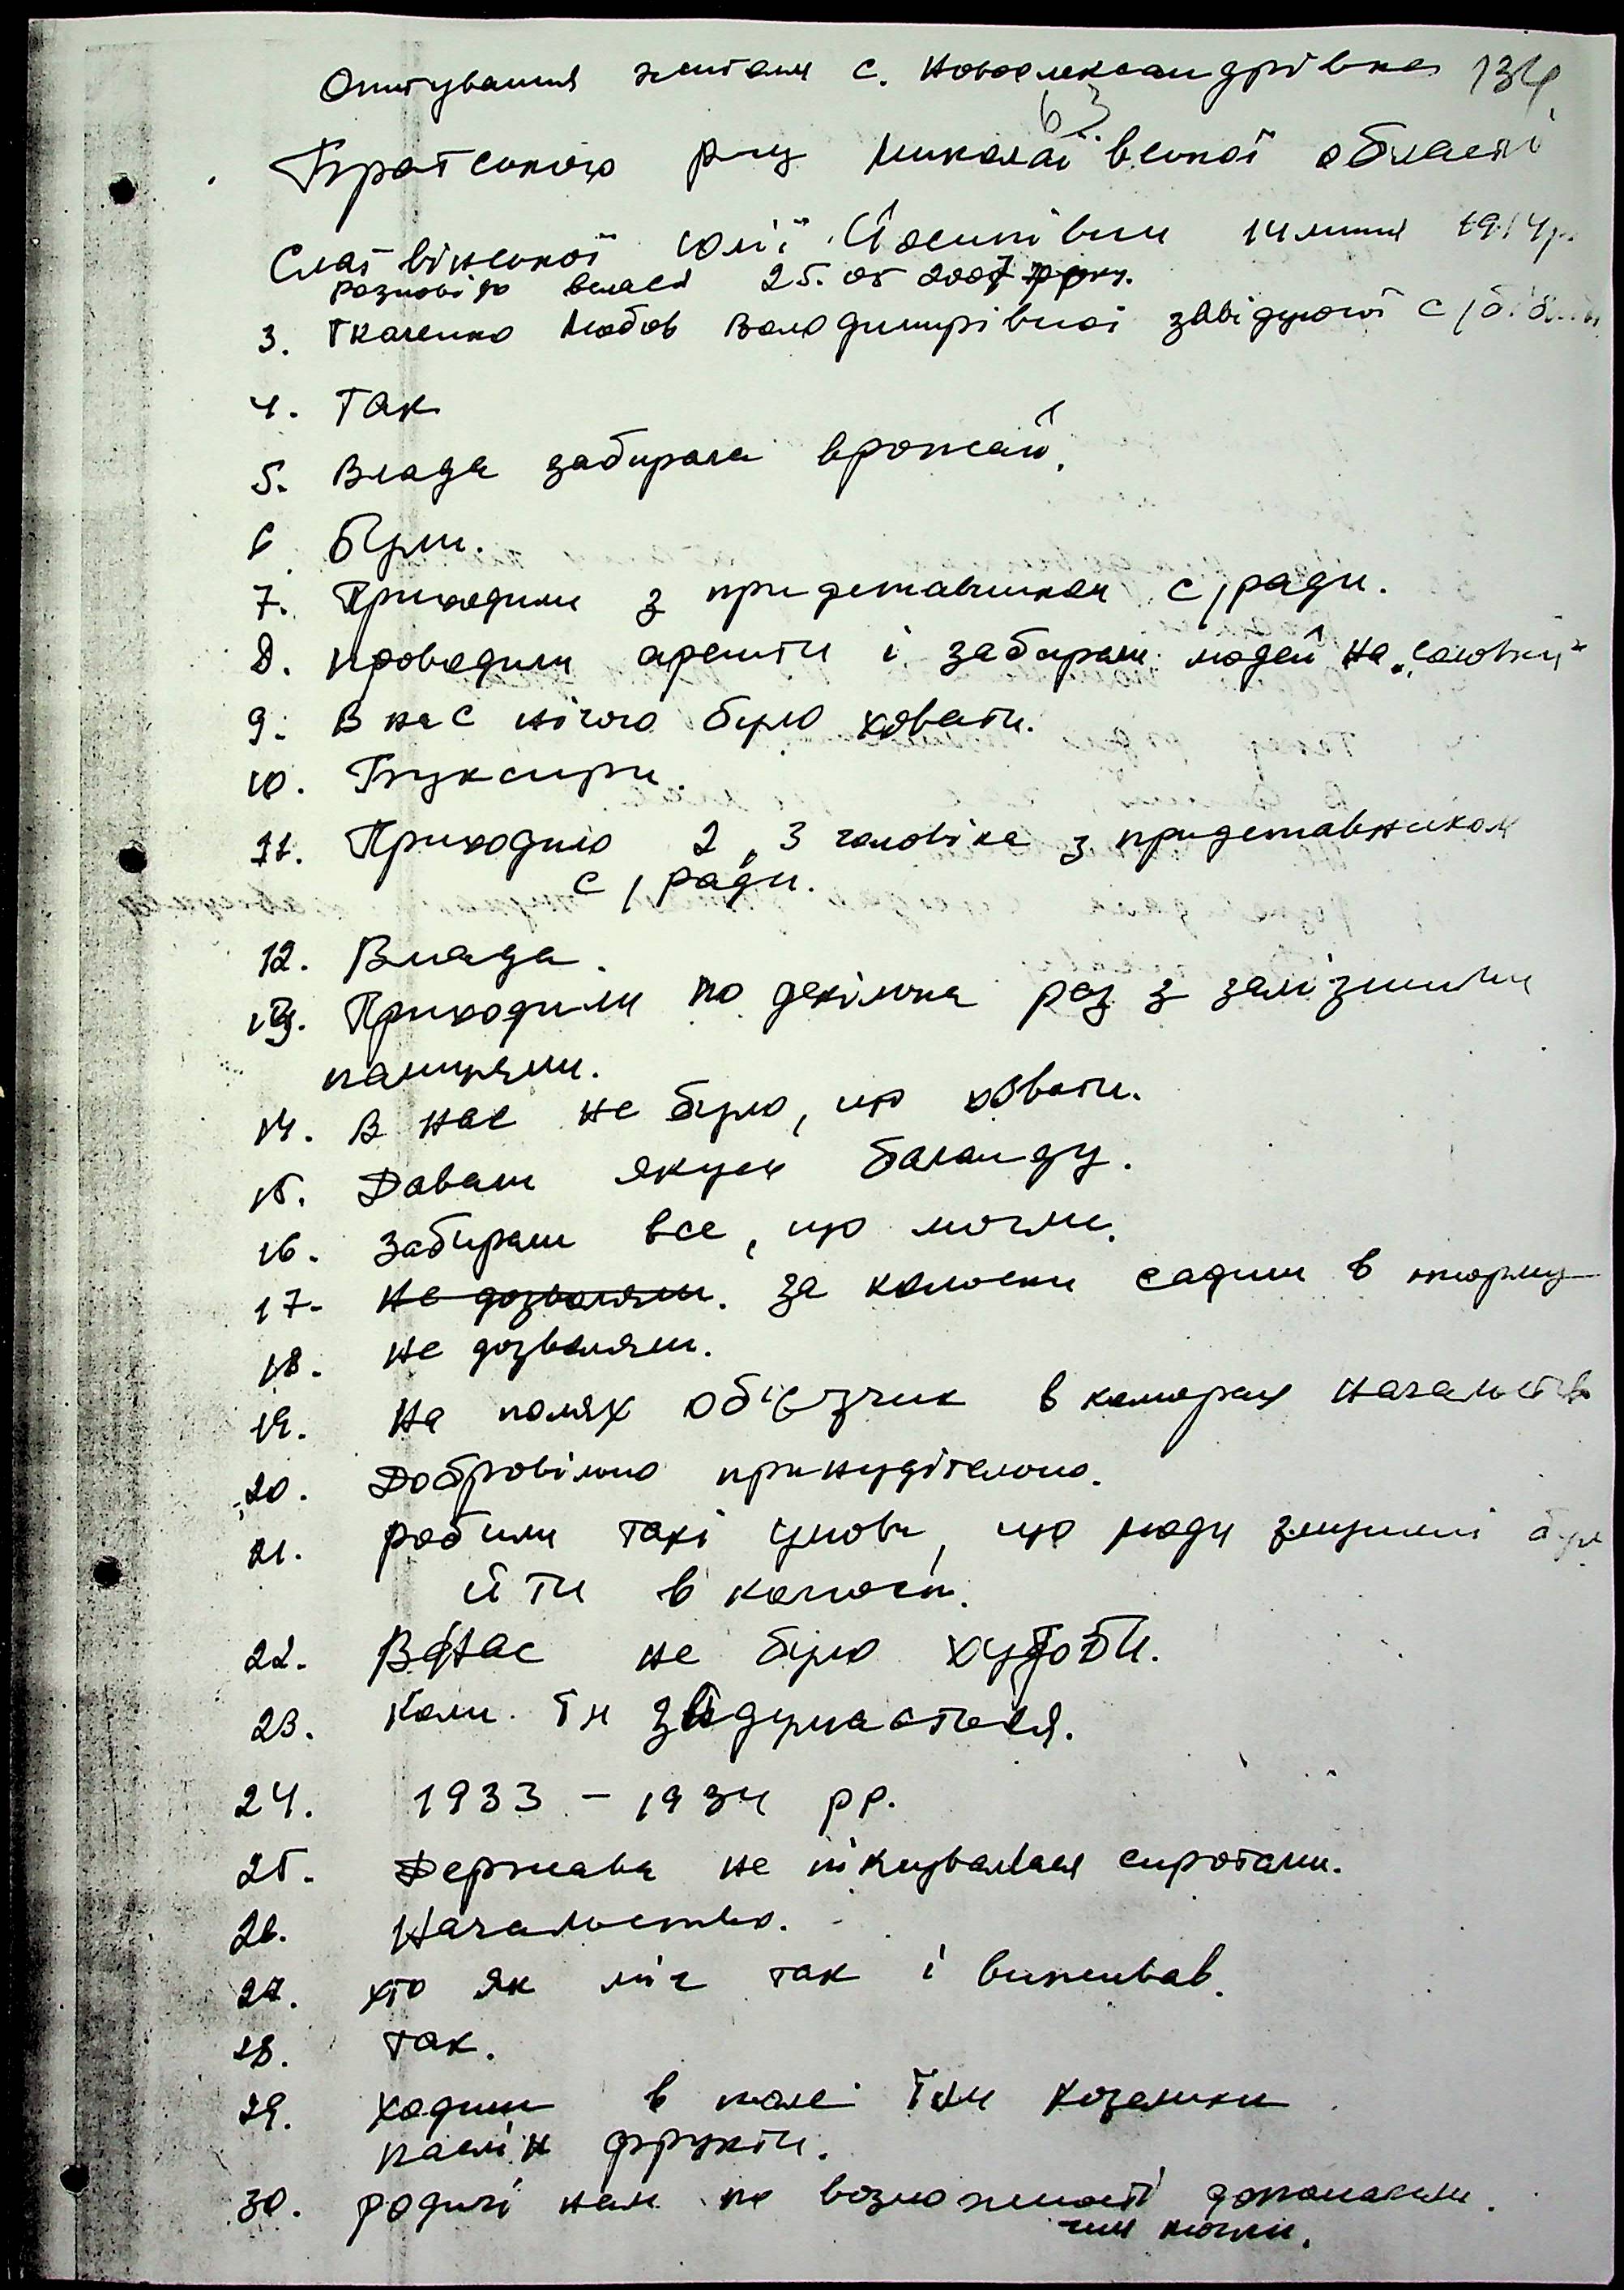 Опитування жителя с. Новоолександрівка 134
63
Братського р-ну Миколаївської області
Слатвінської Юлії Йосипівни 14 липня 1914р.
розповідь велася 25.05 2007 року.
3. Ткаченко Любов Володимирівної завідуючої с/бібл
4. Так
5. Влада забирала врожай.
6 Були.
7. Приходили з придставником с/ради.
8. Проводили арешти і забирали людей на „Соловки"
9. В нас нічого було ховати.
10. Буксири.
11. Приходило 2, 3 чоловіка з придставником
с/ради.
12. Влада.
13. Приходили по декілька раз з залізними
палицями.
14. В нас не було, що ховати.
15. Давали якусь баланду.
16. Забирали все, що могли.
17. Не дозволяли. За колоски садили в тюрму
18. Не дозволяли.
19. На полях обієзчик в коморах начальство
20. Добровільно принудітельно.
21. Робили такі умови, що люди змушені були
йти в колгосп.
22. В нас не було худоби.
23. Коли їй здумається.
24. 1933 - 1934 рр.
25. Держава не піклувалася сиротами.
26. Начальство.
27. Хто як міг так і виживав.
28. Так.
29. Ходили в поле їли козельки
паслін фрукти.
30. Родичі нам по возможності допомагали.
чим могли.